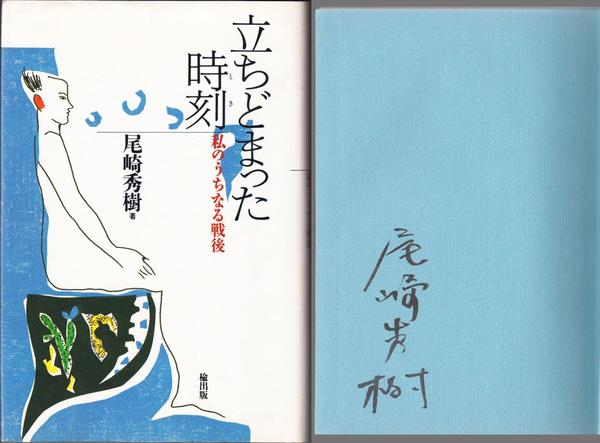 立ちどまった
時刻
とき
私のうちなる戦後
尾崎秀樹 著
楡出版
尾崎秀樹